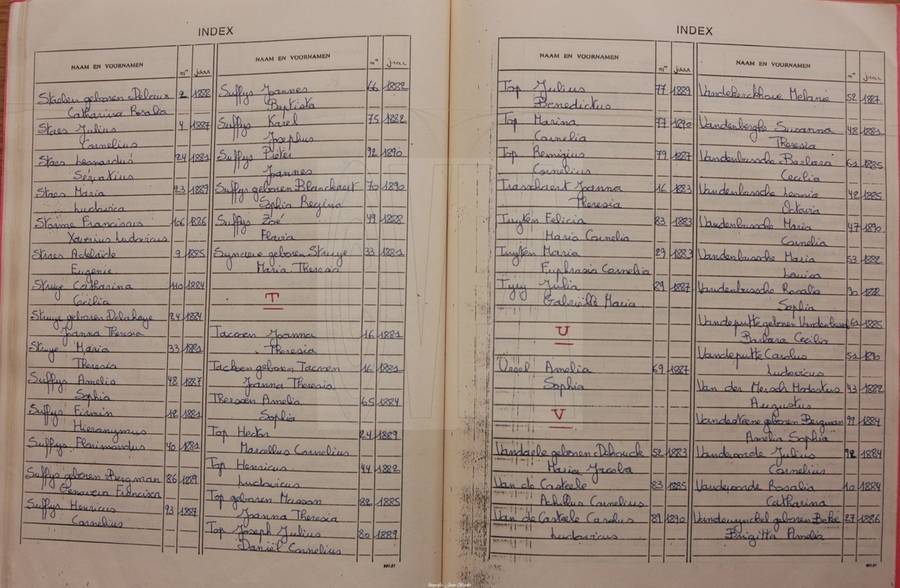 INDEX
NAAM EN VOORNAMEN n° jaar
Catharina Rosalia
Staes Julius 4 1887
Cornelius
Staes Leonardus 24 1881
Staes Maria 23 1889
Ludovica
Storme Franciscus 106 1886
Xaverius Ludovicus
Staes Adelaide 9 1885
Eugenie
Struye Catharina 110 1884
Cecilia
Struye geboren Delahaye 24 1884
Joanna Theresia
Struye Maria 33 1881
Theresia
Suffys Amelia 48 1887
Sophia
Suffys Firmin 12 1881
Hieronymus
Suffys 40 1881
Suffys geboren Bergman 86 1889
Genovera Francisca
Suffys Henricus 93 1887
Cornelius
NAAM EN VOORNAMEN n° jaar
Suffys Joannes 66 1882
Baptista
Suffys Karel 75 1882
Josephus
Suffys Pieter 92 1890
Joannes
Suffys geboren Blanckaert 70 1890
Sophia Regina
Suffys Zoé 49 1888
Flavia
geboren Struye 33 1881
Maria Theresia
T
Tacoen Joanna 16 1881
Theresia
geboren Tacoen 16 1881
Joanna Theresia
Amelia 65 1884
Sophia
Top Hector 24 1889
Marcellus Cornelius
Top Henricus 44 1882
Ludovicus
Top geboren Masson 82 1885
Joanna Theresia
Top Joseph Julius 80 1889
Daniel Cornelius
INDEX
NAAM EN VOORNAMEN n° jaar
Top Julius 77 1889
Benedictus
Top Marina 77 1890
Cornelia
Top Remigius 79 1887
Cornelius
Joanna 16 1883
Theresia
Tuyten Felicia 83 1883
Maria Cornelia
Tuyten Maria 29 1883
Euphrasia Cornelia
Tyry Julia 89 1887
Gabrielle Maria
U
Amelia 69 1887
Sophia
V
Vandaele geboren Dehouck 52 1883
Maria Jacoba
Van de Casteele 83 1885
Achilles Cornelius
Van de Casteele Carolus 89 1890
Ludovicus
NAAM EN VOORNAMEN n° jaar
Vandekerckhove Melanie 52 1887
Vandenberghe Susanna 48 1881
Theresia
Vandenbussche Barbara 61 1885
Cecilia
Vandenbussche Leonie 42 1885
Octavia
Vandenbussche Maria 47 1890
Cornelia
Vandenbussche Maria 53 1882
Louisa
Vandenbussche Rosalia 90 1888
Sophia
Vandeputte geboren 61 1885
Barbara Cecilia
Vandeputte Carolus 51 1890
Ludovicus
Van der Mersch Modestus 43 1882
Augustus
geboren Bergman 99 1884
Amelia Sophia
Julius 92 1884
Cornelius
Rosalia 10 1884
Catharina
geboren 27 1886
Brigitta Amelia